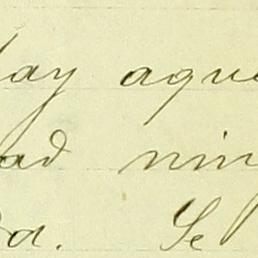 lay aque
ad nin
da. Se